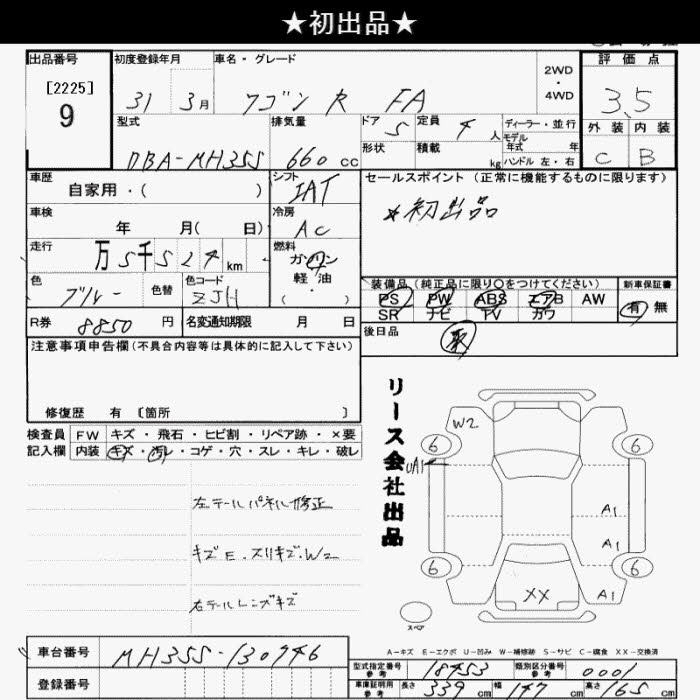 ★初出品★
出品番号 初度登録年月 車名・グレード 2WD・4WD 評価点
[2225]
9
31 3月 ワゴン R FA 3.5
型式 排気量 ドア 5 定員 4人 ディーラー・並行 外装 内装
モデル年式 年
DBA-MH35S 660cc 形状 積載 kg ハンドル 左・右 C B
車歴 シフト セールスポイント (正常に機能するものに限ります)
自家用・( ) IAT
☆初出品
車検 冷房
年 月( 日) AC
走行 燃料
万5千524km ガソリン
軽油
色 色替 色コード ・( ) 装備品(純正品に限り○をつけてください) 新車保証書
ブルー ZJH PS PW ABS エアB AW 有 無
SR ナビ TV カワ
R券 8850円 名変通知期限 月 日 後日品
取
注意事項申告欄(不具合内容等は具体的に記入して下さい)
修復歴 有 〔箇所 〕
リース会社出品
検査員 FW キズ・飛石・ヒビ割・リペア跡・×要
記入欄 内装 キズ・汚レ・コゲ・穴・スレ・キレ・破レ
W2
6 6
UA1
左テールパネル修正
A1
キズE.スリキズ.W2
A1
6 6
右テールレンズキズ
XX A1
スペア
A-キズ E-エクボ U-凹み W-補修跡 S-サビ C-腐食 XX-交換済
車台番号 MH35S-130946
型式指定番号 参考 18453 類別区分番号 参考 0001
登録番号
車庫証明用 参考 長さ 339cm 幅 147cm 高さ 165cm